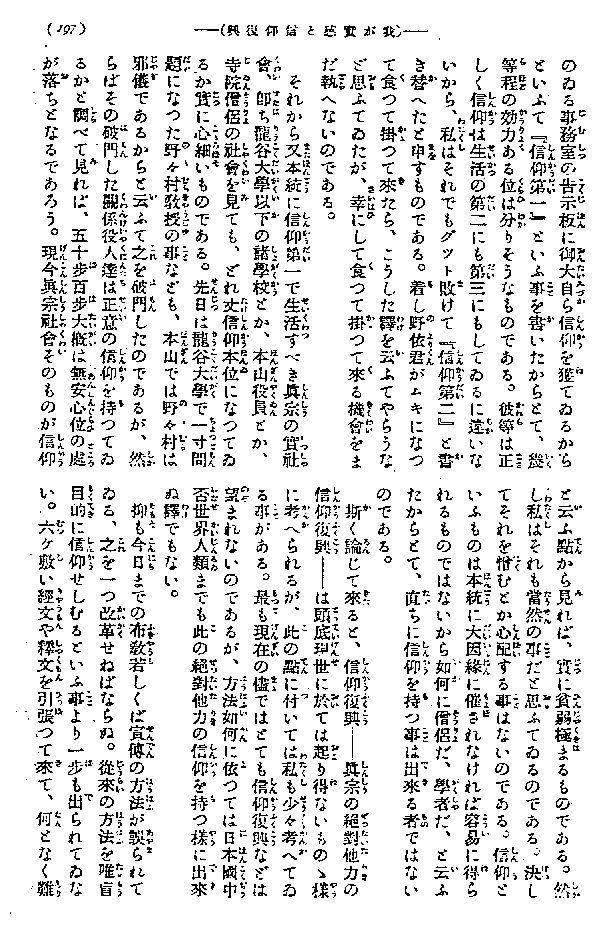 （197）
――（我が實感と信仰復興）――
のゐる事務室の告示板に御大自ら信仰を獲てゐるから
といふて『信仰第一』といふ事を書いたからとて、幾
等程の効力ある位は分りそうなものである。彼等は正
しく信仰は生活の第二にも第三にもしてゐるに違いな
いから、私はそれでもグツト敗けて『信仰第二』と書
き替へたと申すものである。若し野依君がムキになつ
て食つて掛つて來たら、こうした譯を云ふてやらうな
ど思ふてゐたが、幸にして食つて掛つて來る機會をま
だ執へないのである。
それから又本統に信仰第一で生活すべき眞宗の實社
會、卽ち龍谷大學以下の諸學校とか、本山役員とか、
寺院僧侶の社會を見ても、どれ丈信仰本位になつてゐ
るか實に心細いものである。先日は龍谷大學で一寸問
題になつた野々村敎授の事なども、本山では野々村は
邪儀であるからと云ふて之を破門したのであるが、然
らばその破門した關係役人達は正意の信仰を持つてゐ
るかと調べて見れば、五十步百步大槪は無安心位の處
が落ちとなるであろう。現今眞宗社會そのものが信仰
と云ふ點から見れば、實に貧弱極まるものである。然
し私はそれも當然の事だと思ふてゐるのである。決し
てそれを憎むとか心配する事はないのである。信仰と
いふものは本統に大因緣に催されなければ容易に得ら
れるものではないから如何に僧侶だ、學者だ、と云ふ
たからとて、直ちに信仰を持つ事は出來る者ではない
のである。
斯く論じて來ると、信仰復興――眞宗の絕對他力の
信仰復興――は頭底現世に於ては起り得ないものゝ樣
に考へられるが、此の點に付いては私も少々考へてゐ
る事がある。最も現在の儘ではとても信仰復興などは
望まれないのであるが、方法如何に依つては日本國中
否世界人類までも此の絕對他力の信仰を持つ樣に出來
ぬ譯でもない。
抑も今日までの布敎若しくば宣傳の方法が誤られて
ゐる、之を一つ改革せねばならぬ。從來の方法を唯盲
目的に信仰せしむるといふ事より一步も出られてゐな
い。六ケ敷い經文や釋文を引張つて來て、何となく難